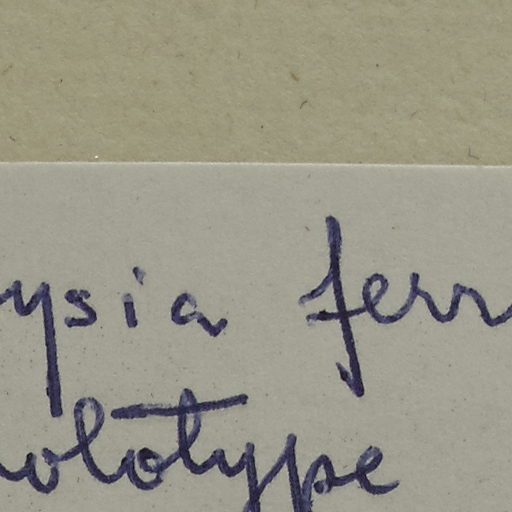 ysia ferr
olotype